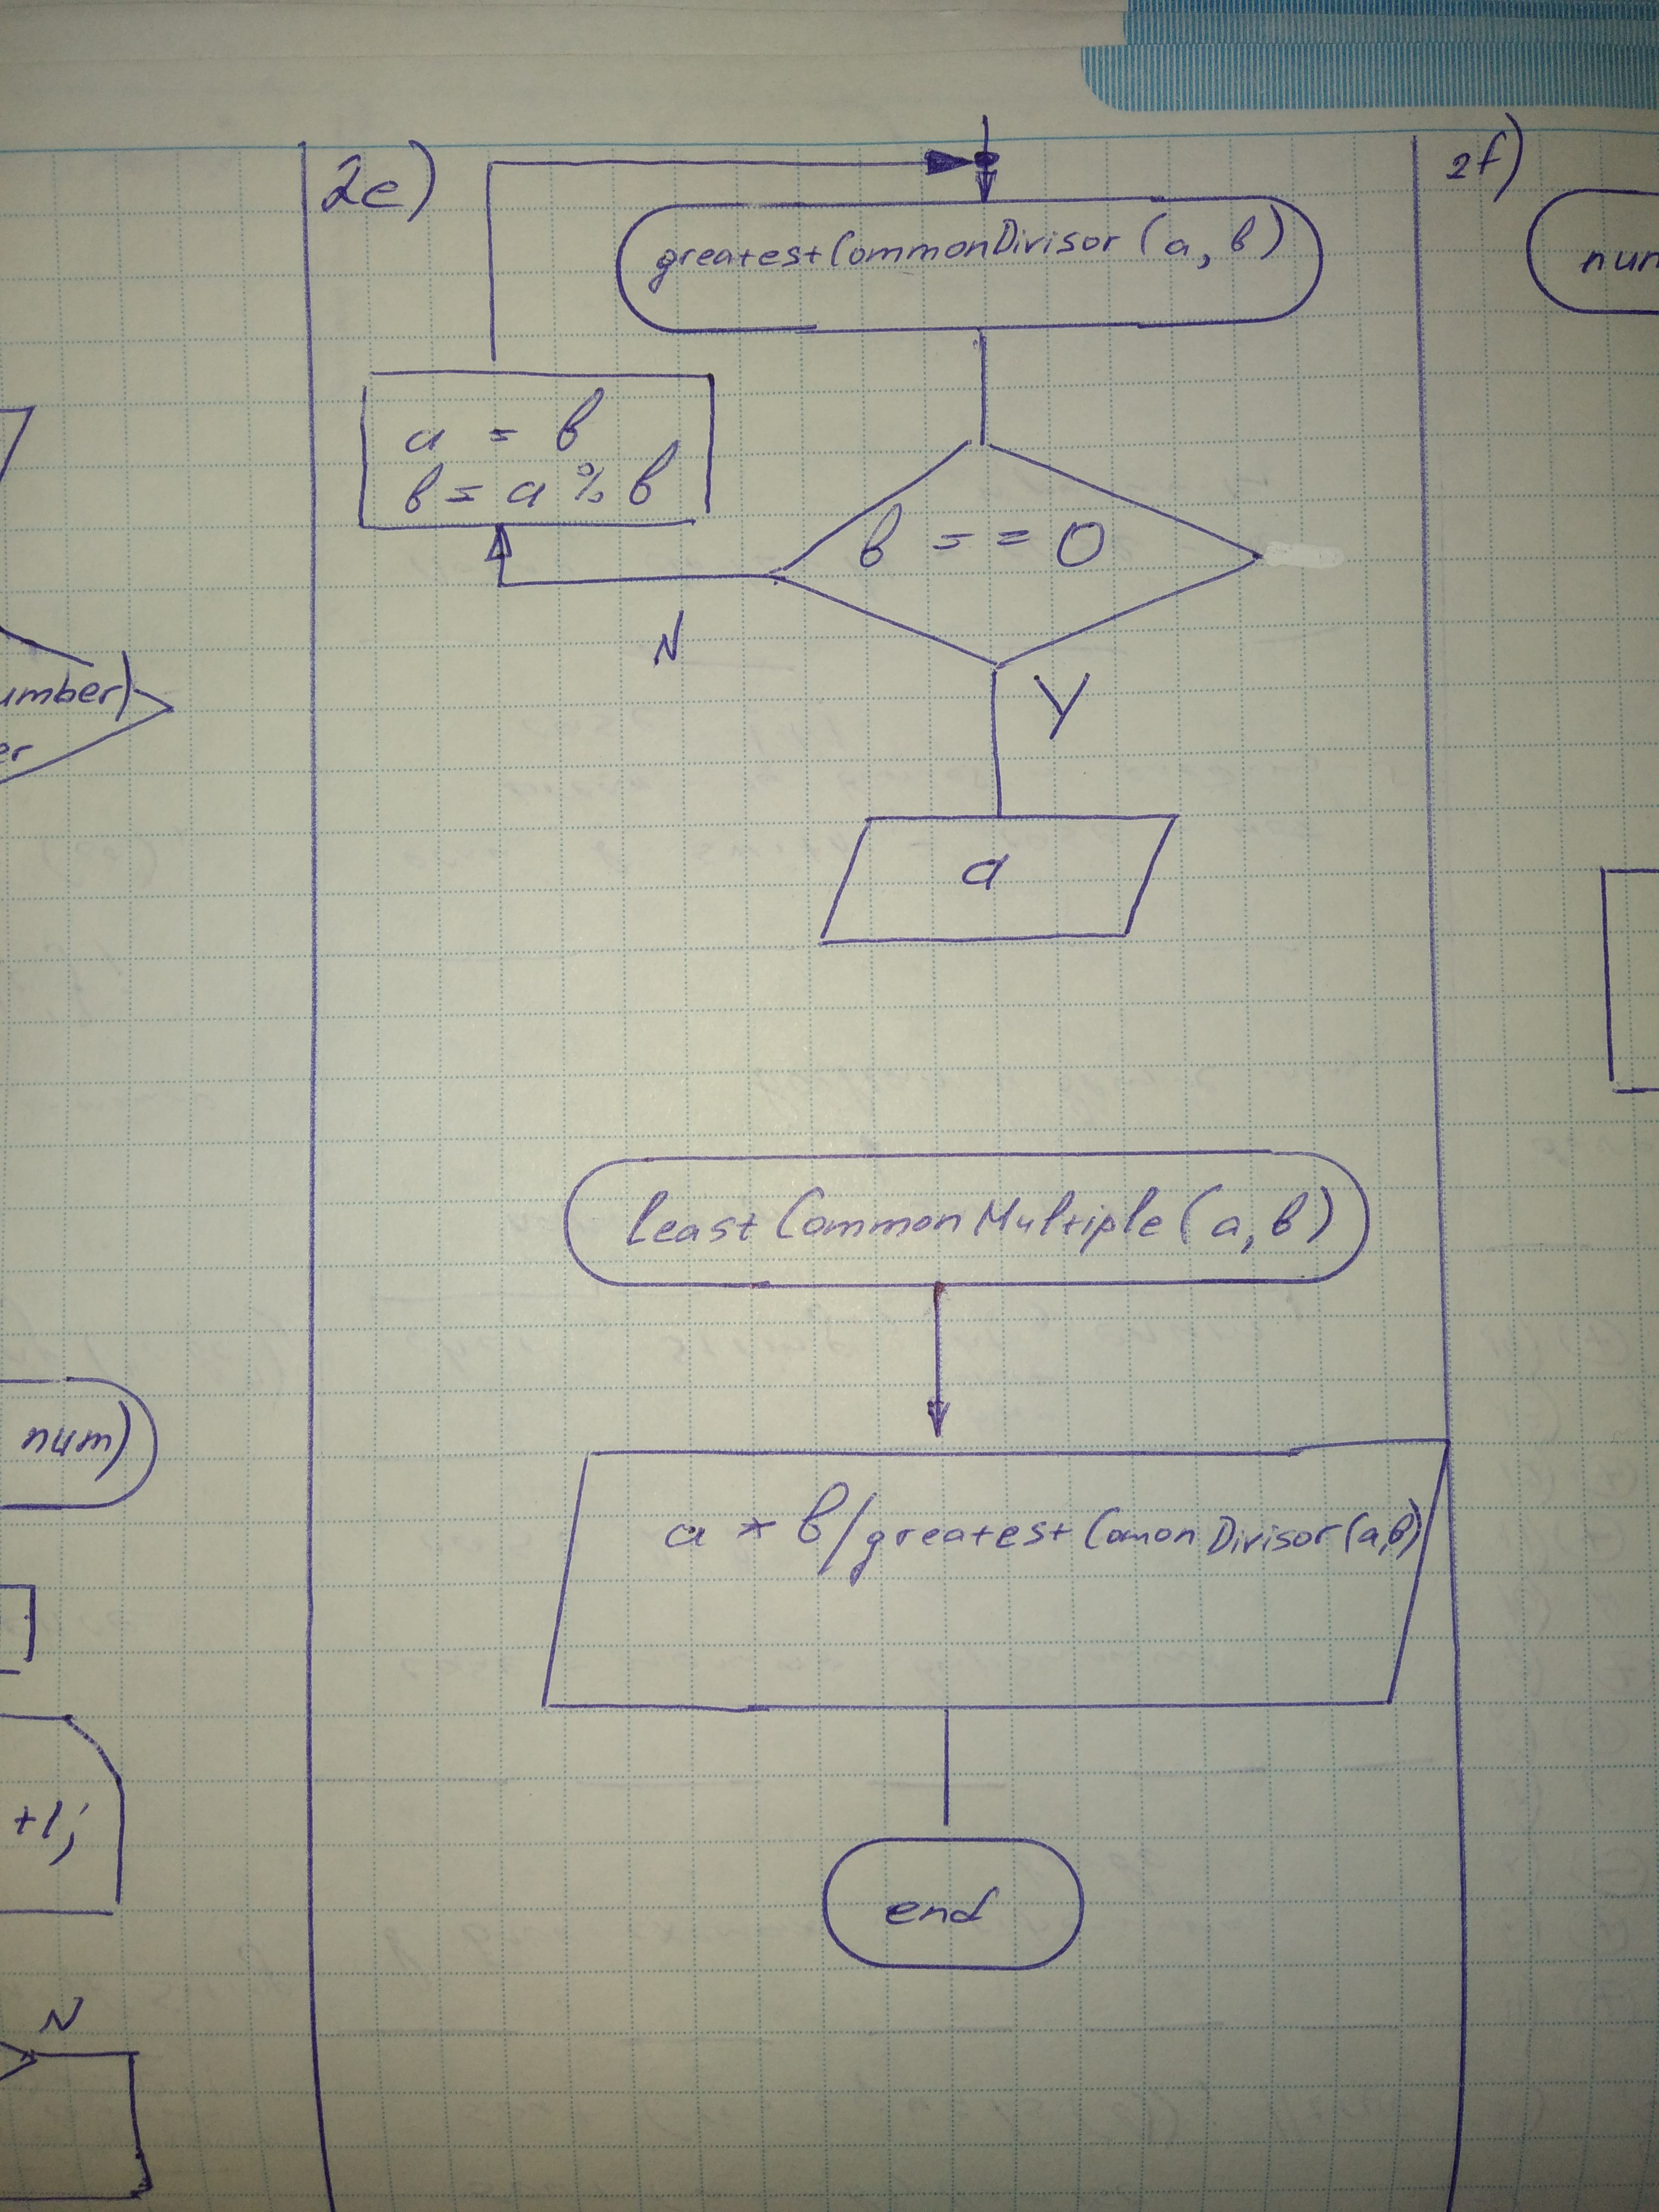 2e)
greatestCommonDivisor (a, b)
a = b
b = a % b
b == 0
N
Y
a
leastCommonMultiple (a, b)
a * b/greatestComonDivisor(a,b)
end
2f)
num)
+1;
N